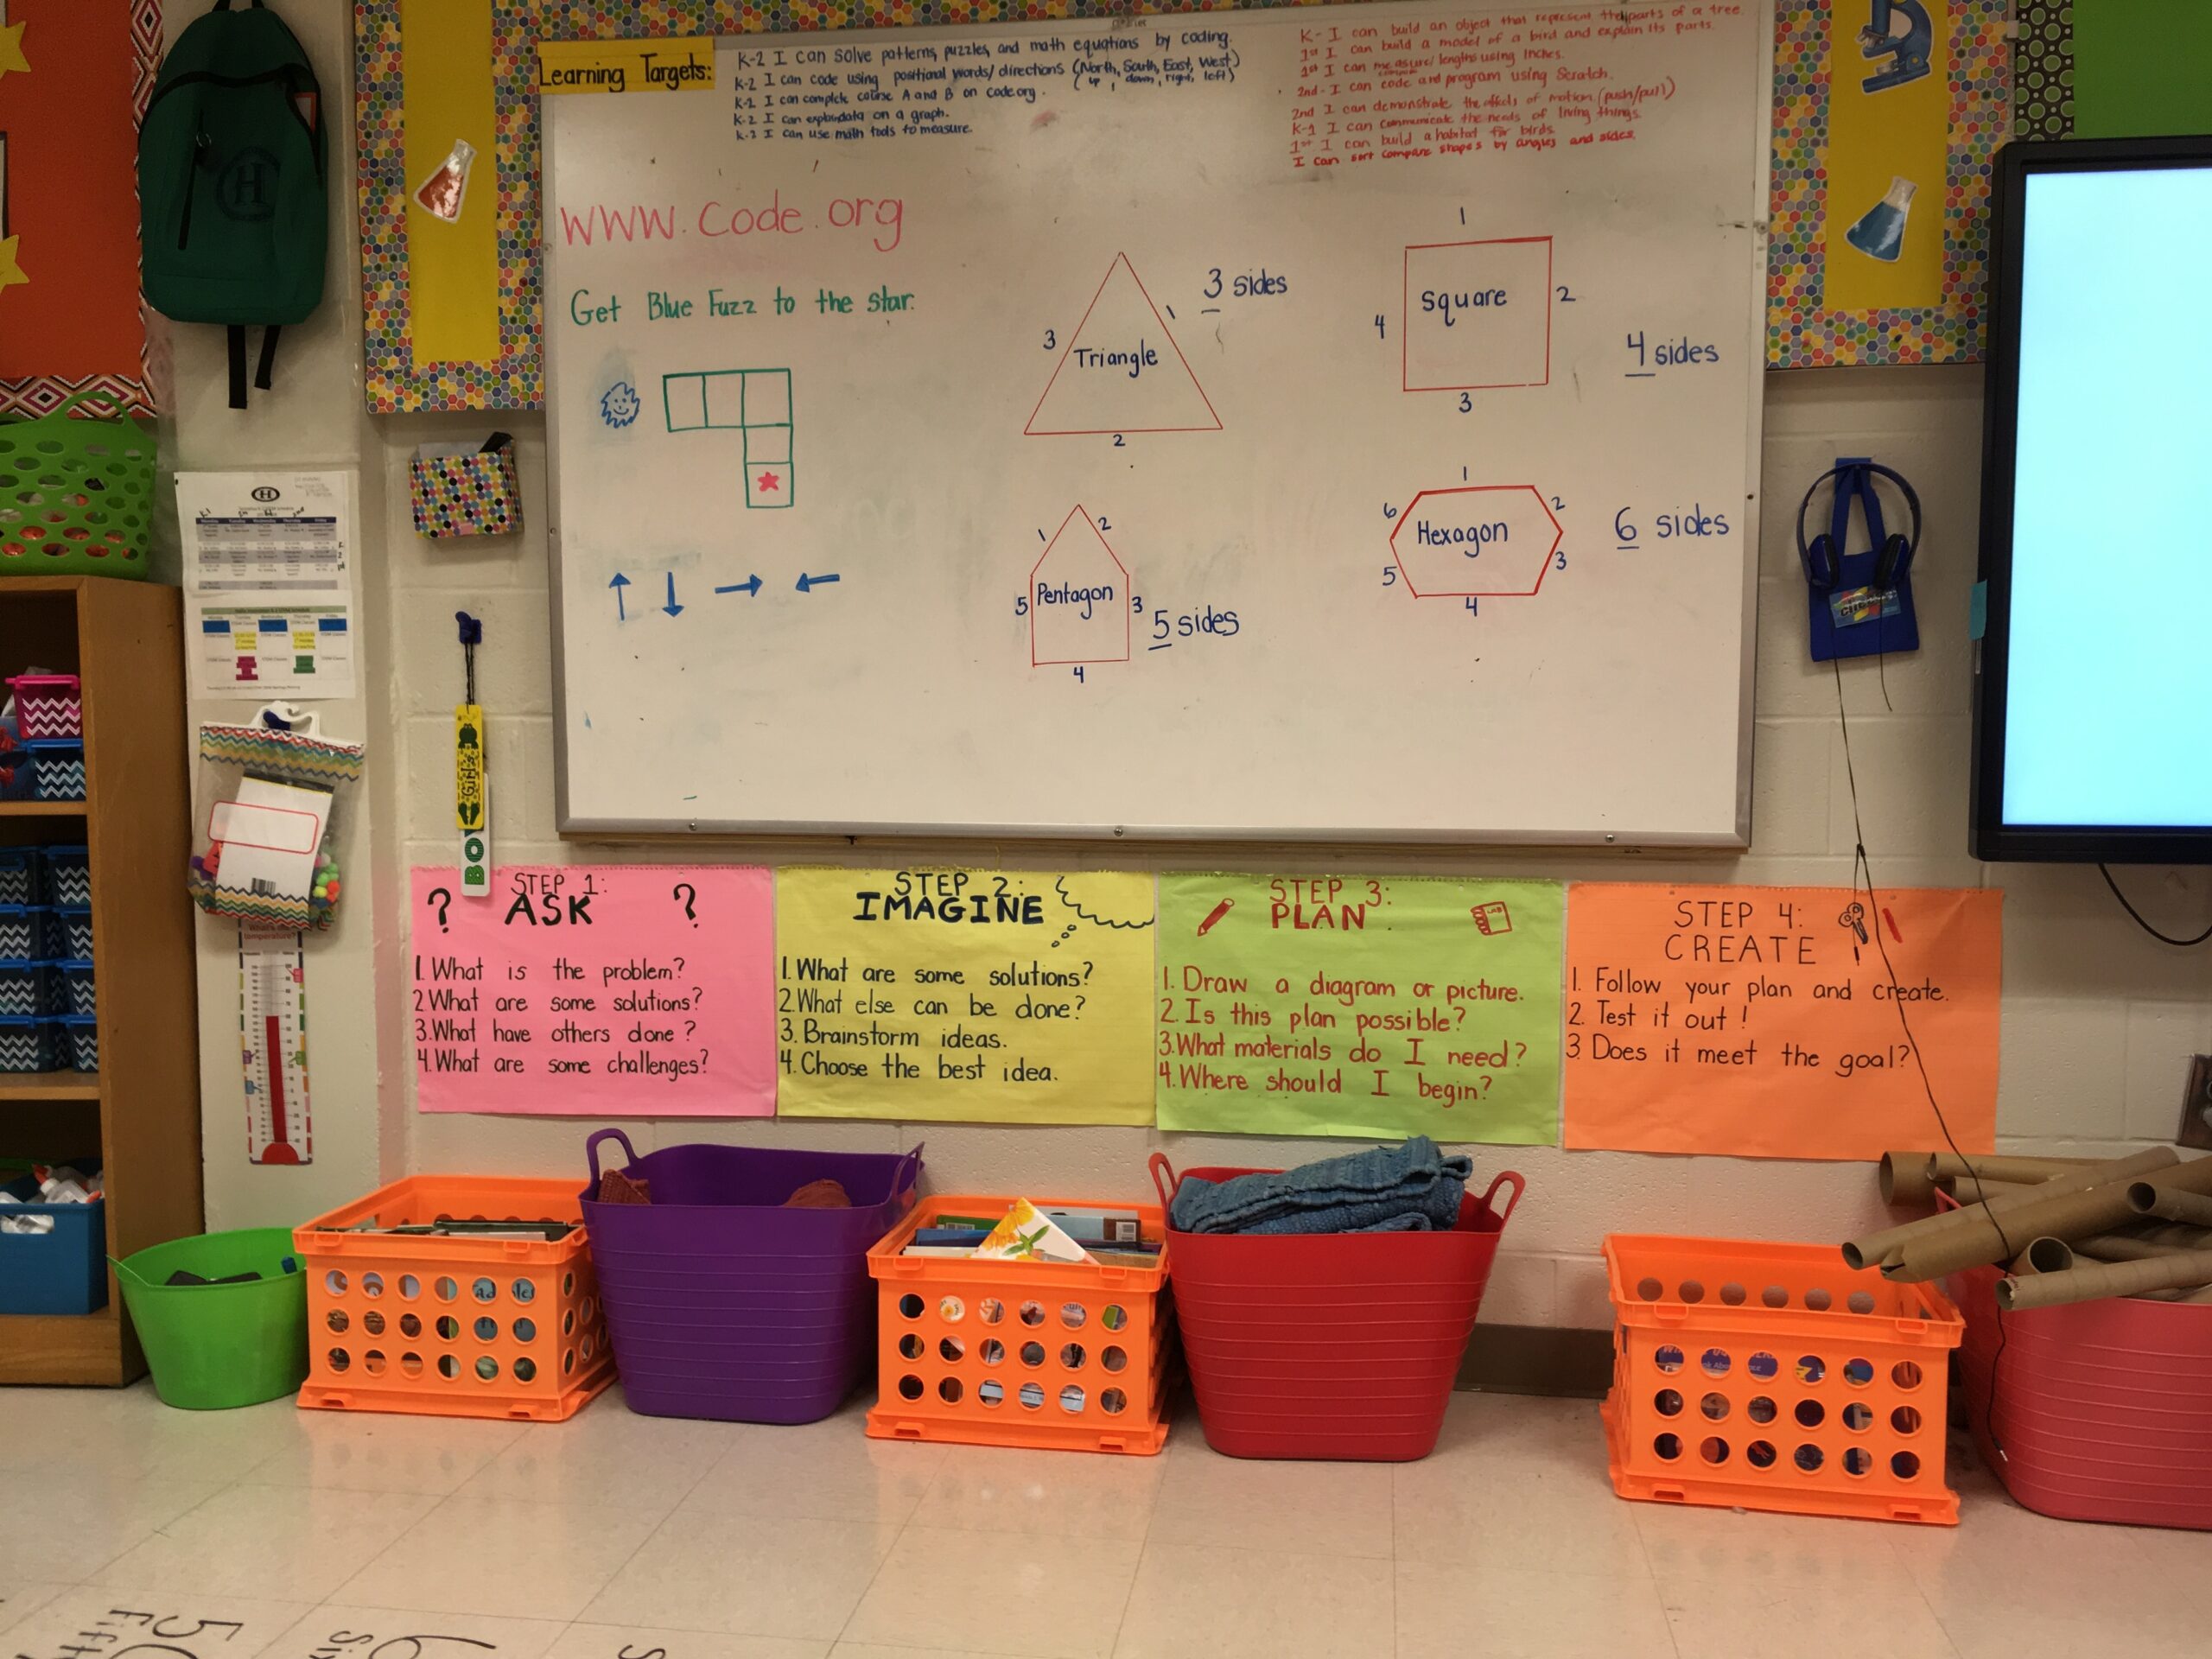 Learning Targets:
K-2 I can solve patterns, puzzles, and math equations by coding.
K-2 I can code using positional words/directions (North, South, East, West)
(up, down, right, left)
K-2 I can complete course A and B on code.org.
K-2 I can explore data on a graph.
K-2 I can use math tools to measure.
K- I can build an object that represent the parts of a tree.
1st I can build a model of a bird and explain its parts.
1st I can measure lengths using inches.
2nd- I can code and program using Scratch.
2nd I can demonstrate the effects of motion (push/pull)
K-1 I can communicate the needs of living things.
1st I can build a habitat for birds.
I can sort compare shapes by angles and sides.
WWW.Code.org
Get Blue Fuzz to the star.
Triangle
1
2
3
3 sides
Square
1
2
3
4
4 sides
Pentagon
1
2
3
4
5
5 sides
Hexagon
1
2
3
4
5
6
6 sides
H
H
GIRLS
BO
? STEP 1: ?
ASK
1. What is the problem?
2 What are some solutions?
3. What have others done?
4. What are some challenges?
STEP 2:
IMAGINE
1. What are some solutions?
2. What else can be done?
3. Brainstorm ideas.
4. Choose the best idea.
STEP 3:
PLAN
1. Draw a diagram or picture.
2. Is this plan possible?
3. What materials do I need?
4. Where should I begin?
STEP 4:
CREATE
1. Follow your plan and create.
2. Test it out!
3. Does it meet the goal?